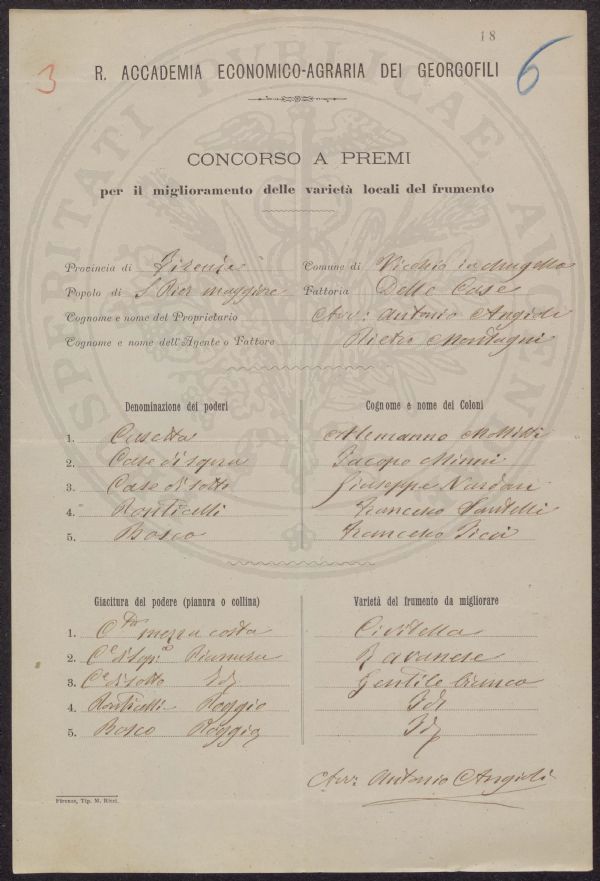 18
3
6
R. ACCADEMIA ECONOMICO-AGRARIA DEI GEORGOFILI
CONCORSO A PREMI
per il miglioramento delle varietà locali del frumento
Provincia di Firenze Comune di Vicchio in Mugello
Popolo di S. Pier maggiore Fattoria Delle Case
Cognome e nome del Proprietario Avv: Antonio Angioli
Cognome e nome dell'Agente o Fattore Pietro Montagni
Denominazione dei poderi Cognome e nome dei Coloni
1. Casetta Alemanno
2. Case di sopra Jacopo Minni
3. Case di sotto Giuseppe Nardoni
4. Ronticelli Francesco Santelli
5. Bosco Francesco Ticci
Giacitura del podere (pianura o collina) Varietà del frumento da migliorare
1. Cta mezza costa Civitella
2. Ce di sopra Pianura Ravanese
3. Ce di sotto Id Gentile bianco
4. Ronticelli Poggio Id
5. Bosco Poggio Id
Avv: Antonio Angioli
Firenze, Tip. M. Ricci.
PROSPERITATI PVBLICAE AVGENDAE